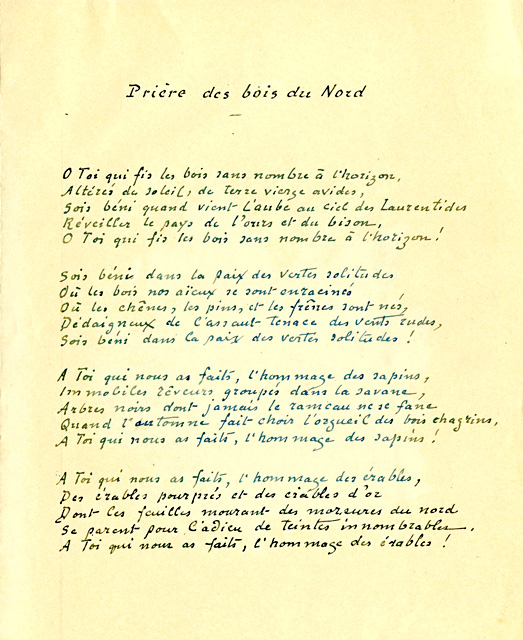 Prière des bois du Nord
O Toi qui fis les bois sans nombre à l'horizon,
Altérés de soleil, de terre vierge avides,
Sois béni quand vient l'aube au ciel des Laurentides
Réveiller le pays de l'ours et du bison,
O Toi qui fis les bois sans nombre à l'horizon!
Sois béni dans la paix des vertes solitudes
Où les bois nos aïeux se sont enracinés
Où les chênes, les pins, et les frênes sont nés,
Dédaigneux de l'assaut tenace des vents rudes,
Sois béni dans la paix des vertes solitudes!
A Toi qui nous as faits, l'hommage des sapins,
Immobiles rêveurs groupés dans la savane,
Arbres noirs dont jamais le rameau ne se fane
Quand l'automne fait choir l'orgueil des bois chagrins,
A Toi qui nous as faits, l'hommage des sapins!
A Toi qui nous as faits, l'hommage des érables,
Des érables pourprés et des érables d'or
Dont les feuilles mourant des morsures du nord
Se parent pour l'adieu de teintes innombrables.
A Toi qui nous as faits, l'hommage des érables!